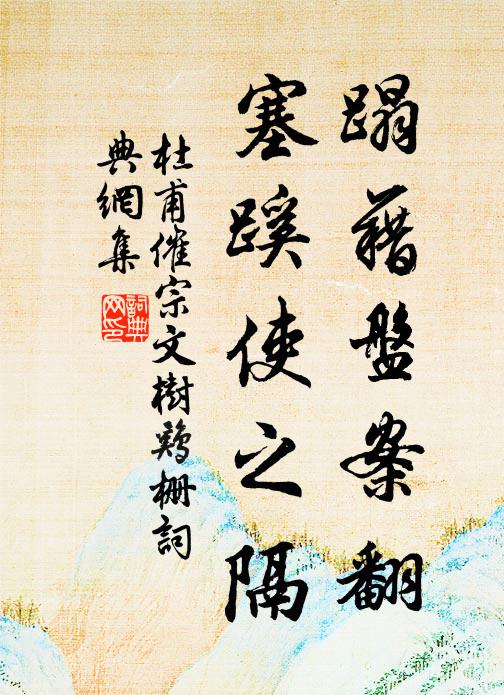 蹋藉盤案翻
塞蹊使之隔
杜甫催宗文樹鷄柵詞
典網集
詞典網印